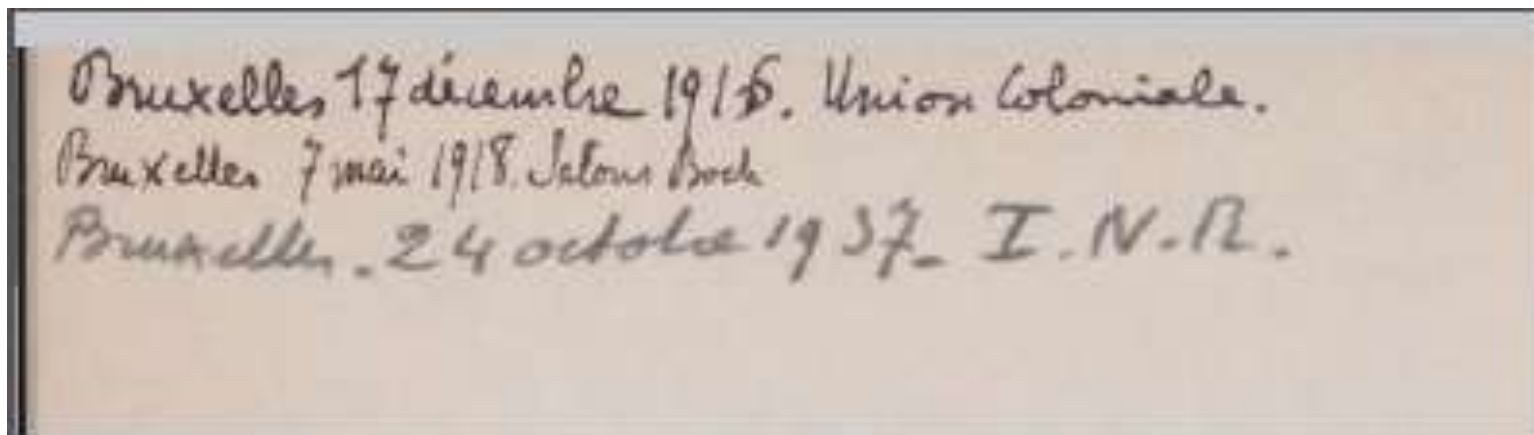 Bruxelles 17 décembre 1916. Union Coloniale.
Bruxelles 7 mai 1918. Salons Bock
Bruxelles. 24 octobre 1937_ I.N.R.